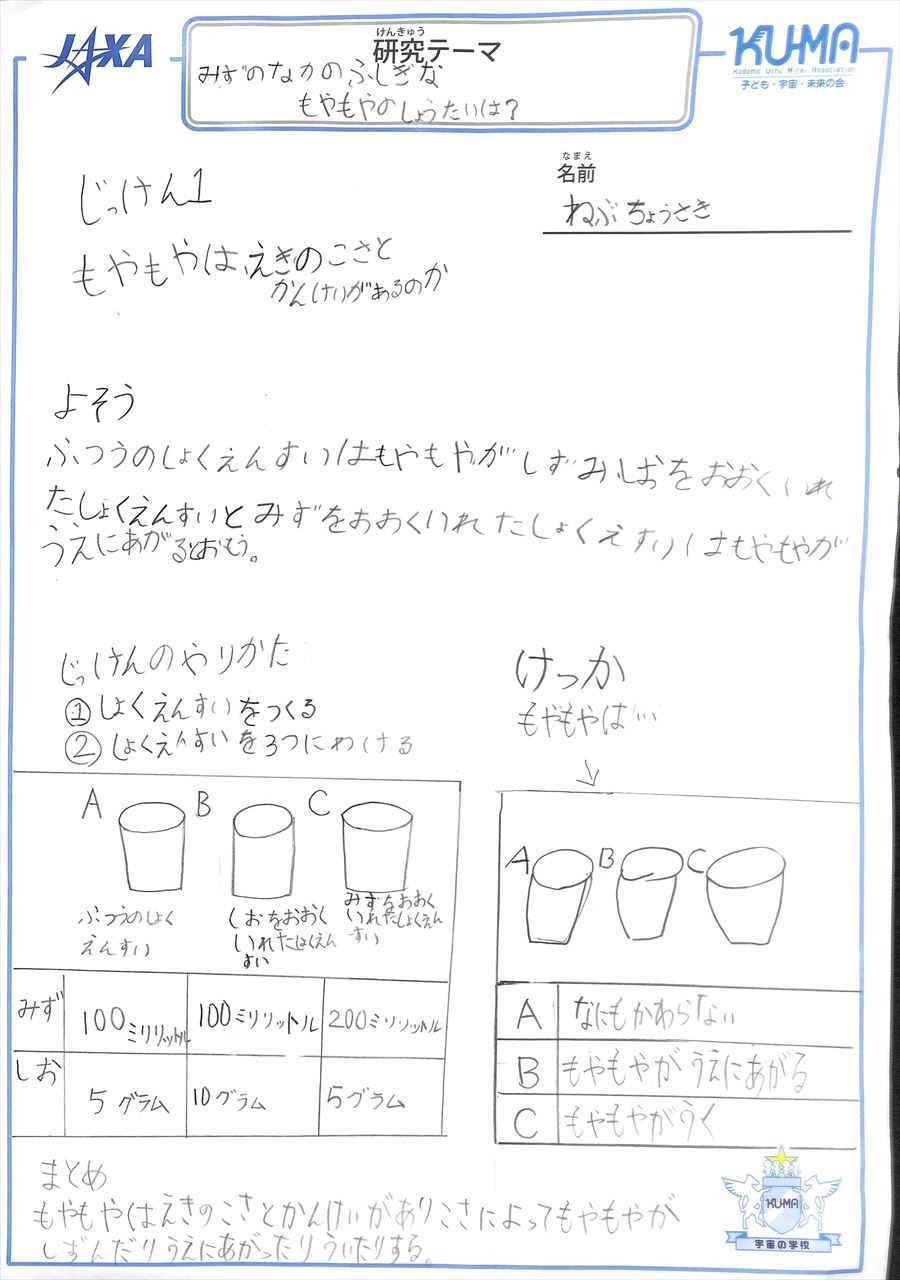 JAXA
けんきゅう
研究テーマ
みずのなかのふしぎな
もやもやのしょうたいは?
KUMA
Kodomo Uchu Mirai Association
子ども・宇宙・未来の会
なまえ
名前
ねぶちょうさき
じっけん1
もやもやは、えきのこさと
かんけいがあるのか
よそう
ふつうのしょくえんすいはもやもやがしずみしおをおおくいれ
たしょくえんすいとみずをおおくいれたしょくえすいはもやもやが
うえにあがるとおもう。
じっけんのやりかた
①しょくえんすいをつくる
②しょくえんすいを3つにわける
A B C
ふつうのしょく
えんすい
しおをおおく
いれたしょくえん
すい
みずをおおく
いれたしょくえん
すい
みず 100ミリリットル 100ミリリットル 200ミリリットル
しお 5グラム 10グラム 5グラム
けっか
もやもやは…
A B C
A なにもかわらない
B もやもやがうえにあがる
C もやもやがうく
まとめ
もやもやはえきのこさとかんけいがありこさによってもやもやが
しずんだりうえにあがったりういたりする。
KUMA
宇宙の学校